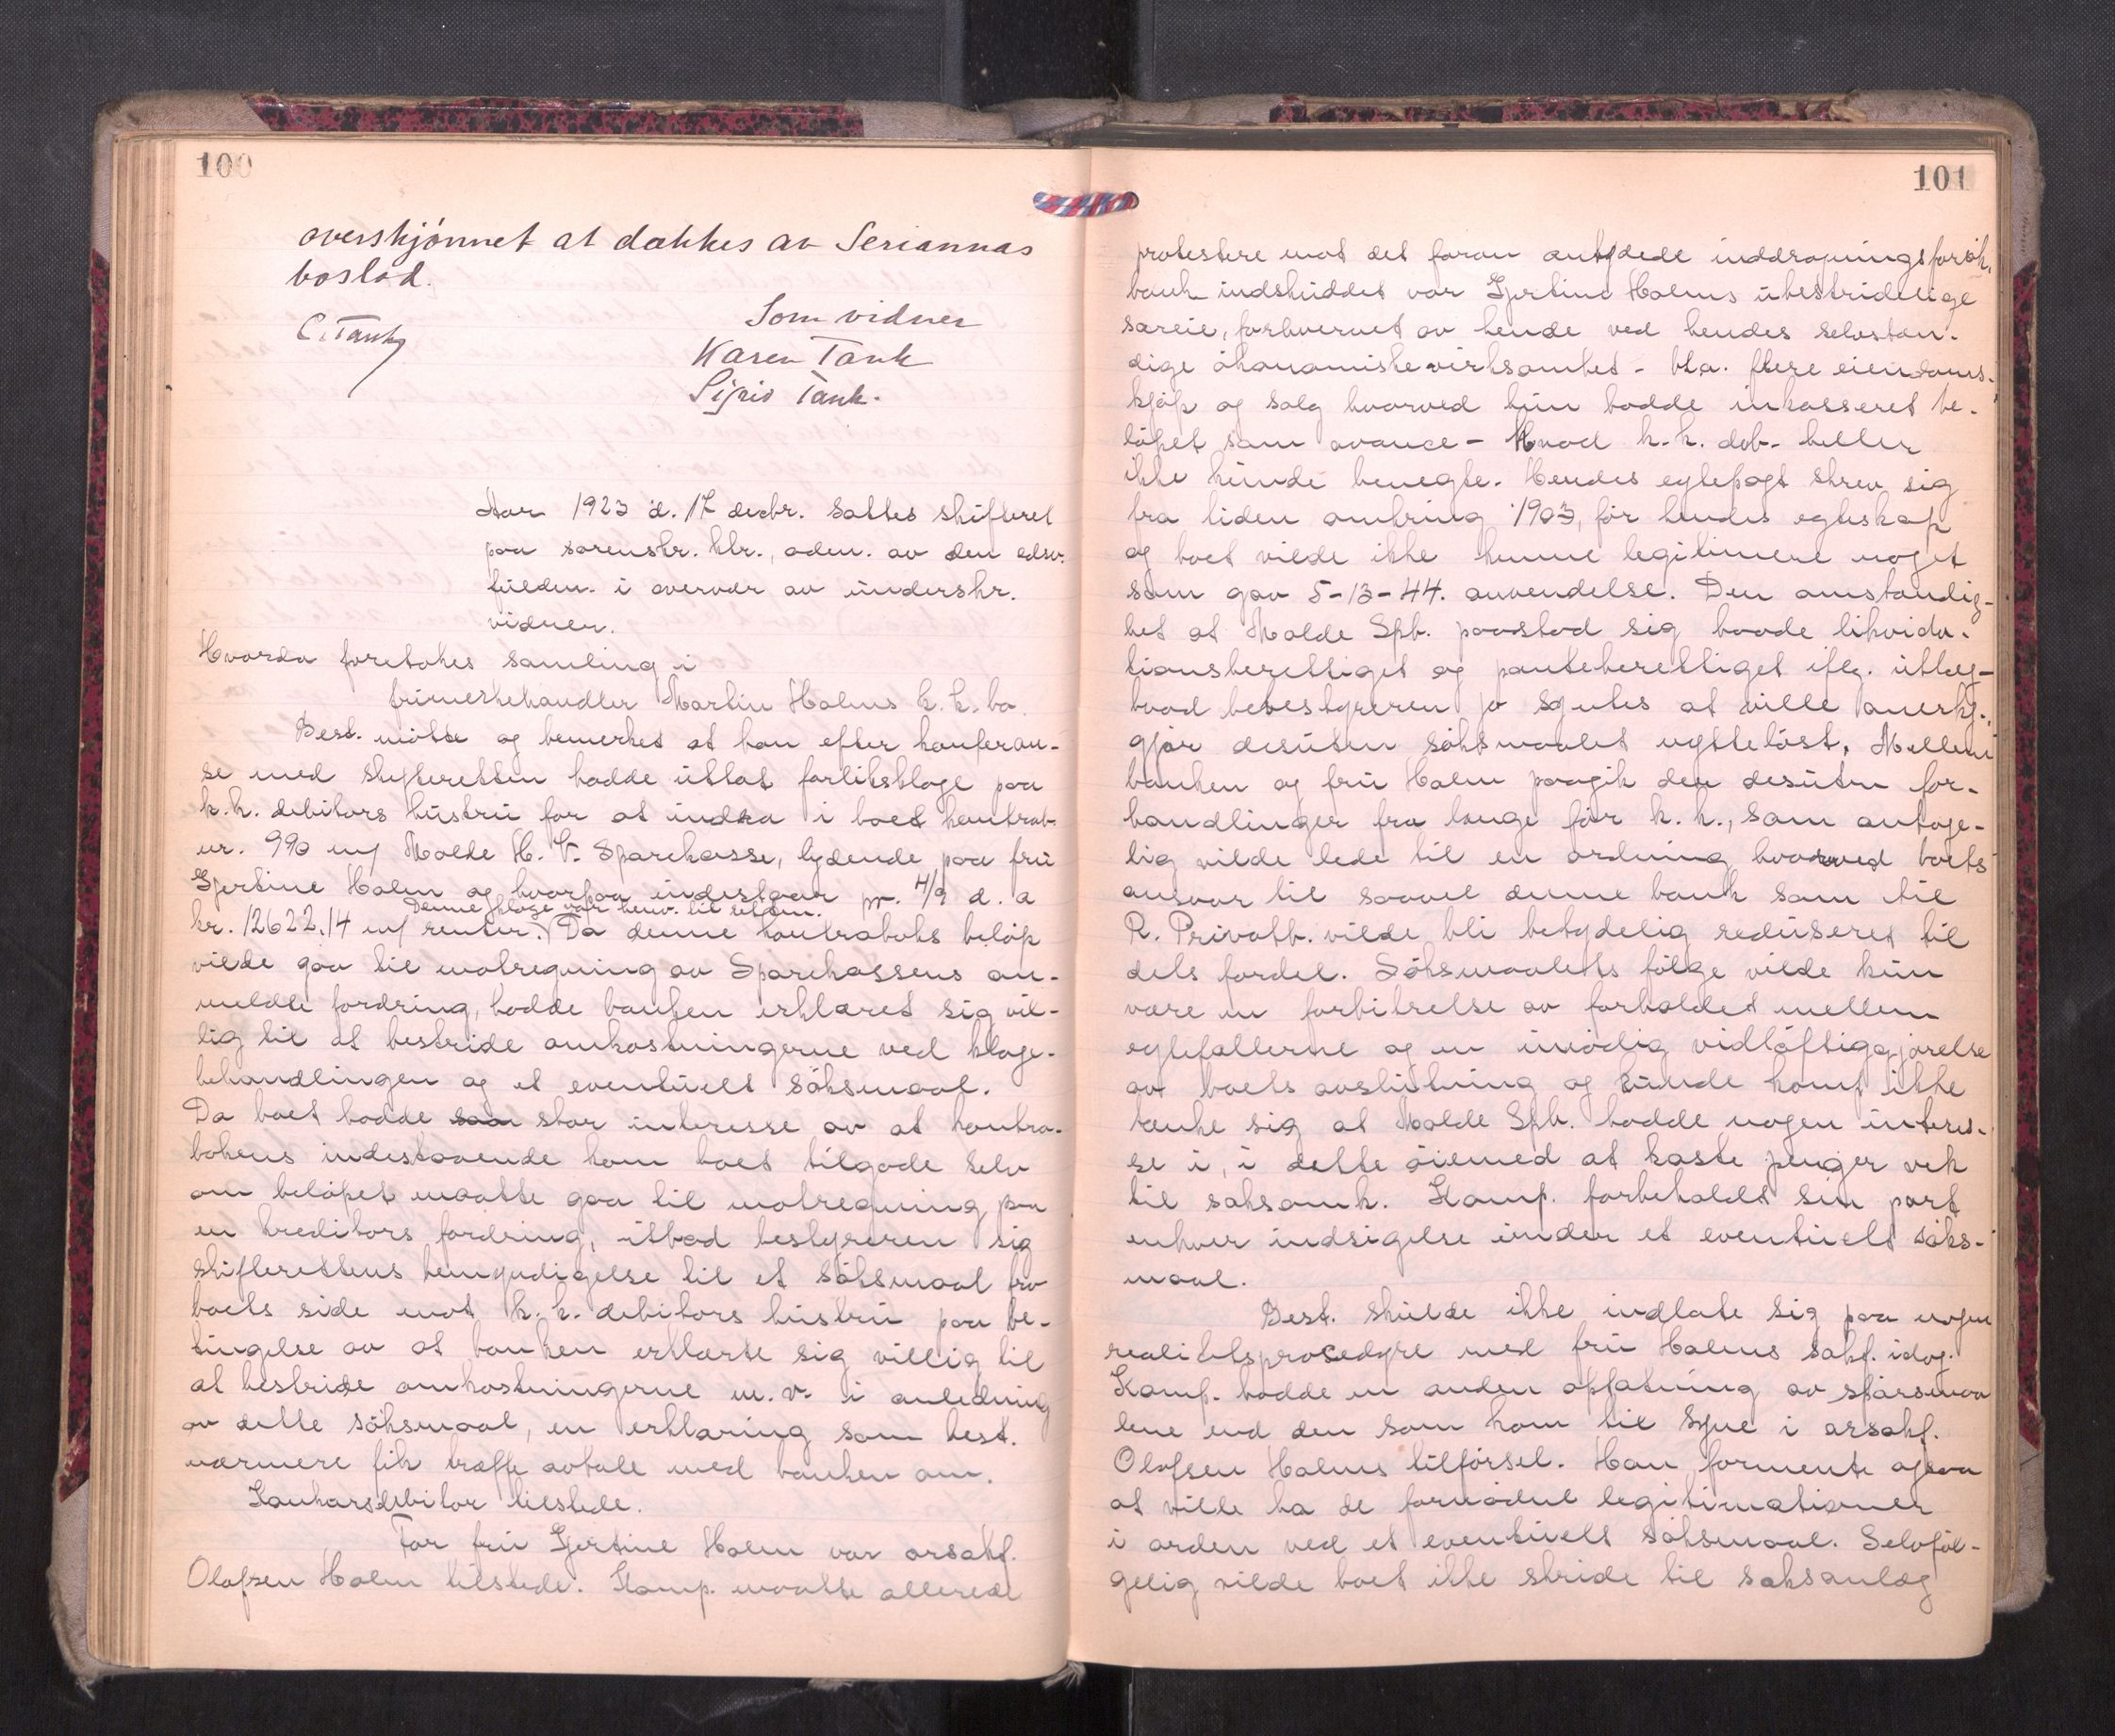 100
overskjönnet at dækkes av Seriannas
boslod.
Som vidner
C. Tank
Karen Tank
Sigrid Tank.
Aar 1923 d. 17 decbr. sattes skifteret
paa sorenskr. ktr., adm. av den edsv.
fuldm. i overvær av underskr.
vidner.
Hvorda foretokes samling i
frimerkehandler Martin Holms k.k. bo.
Best. møtte og bemerket at han efter konferan-
se med skifteretten hadde uttat forliksklage paa
k.k. debitors hustru for at inddra i boet kontrab.
nr. 990 m/ Molde H. & V. Sparekasse, lydende paa fru
Gjertine Holm og hvorpaa indestaar pr. 4/9 d. a
Denne klage var henv. til retten.
kr. 12622,14 m/ renter. Da denne kontraboks beløp
vilde gaa til motregning av Sparekassens an-
meldte fordring, hadde banken erklæret sig vil-
lig til at bestride omkostningerne ved klage-
behandlingen og et eventuelt söksmaal.
Da boet hadde saa stor interesse av at kontra-
bokens indestaaende kom boet tilgode selv
om belöpet maatte gaa til motregning paa
en kreditors fordring, utbad bestyreren sig
skifterettens bemyndigelse til et söksmaal fra
boets side mot k.k. debitors hustru paa be-
tingelse av at banken erklærte sig villig til
at bestride omkostningerne m. v. i anledning
av dette söksmaal, en erklæring som best.
nærmere fik træffe avtale med banken om.
Konkursdebitor tilstede.
For fru Gjertine Holm var orsakf.
Olafsen Holm tilstede. Komp. maatte allerede
101
protestere mot det foran antydede inddragningsforsök,
bank indskuddet var Gjertine Holms ubestridelige
særeie, forhvervet av hende ved hendes selvstæn-
dige ökonomiske virksomhet - bl.a. flere eiendoms-
kjöp og salg hvorved hun hadde inkasseret be-
löpet som avance - hvad k.k. deb. heller
ikke kunde benegte. Hendes egtepagt skrev sig
fra tiden omkring 1903, för hendes egteskap
og boet vilde ikke kunne legitimere noget
som gav 5-13-44. anvendelse. Den omstændig-
het at Molde Spb. paastod sig baade likvida-
tionsberettiget og panteberettiget iflg. utlæg-
hvad bobestyreren jo syntes at ville anerkj.,
gjör desuten söksmaalet nytteløst. Mellem
banken og fru Holm paagik der desuten for-
handlinger fra længe för k.k., som antage-
lig vilde lede til en ordning hvorved boets
ansvar til saavel denne bank som til
R. Privatb. vilde bli betydelig reduseret til
dets fordel. Söksmaalets fölge vilde kun
være en forbitrelse av forholdet mellem
egtefællerne og en unödig vidlöftiggjörelse
av boets avslutning og kunde komp. ikke
tænke sig at Molde Spb. hadde nogen interes-
se i, i dette öiemed at kaste penger vek
til saksomk. Komp. forbeholdt sin part
enhver indsigelse under et eventuelt söks-
maal.
Best. skulde ikke indlate sig paa nogen
realitetsprosedyre med fru Holms sakf. idag.
Komp. hadde en anden opfatning av spörsmaa
lene end den som kom til syne i orsakf.
Olafsen Holms tilförsel. Han formente ogsaa
at ville ha de fornödne legitimationer
i orden ved et eventuelt söksmaal. Selvföl-
gelig vilde boet ikke skride til saksanlæg